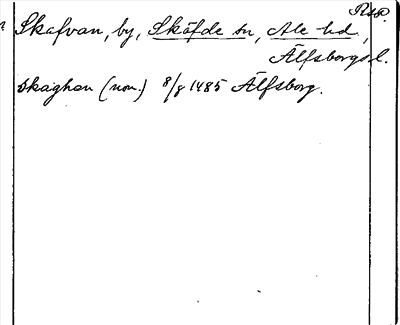 Rep.
Skafvan, by, Skäfde sn, Ale hd,
Älfsborgs l.
Skaghan (nom.) 8/8 1485 Älfsborg.